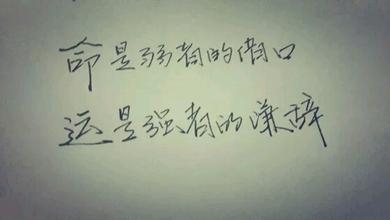 命是弱者的借口
运是强者的谦辞